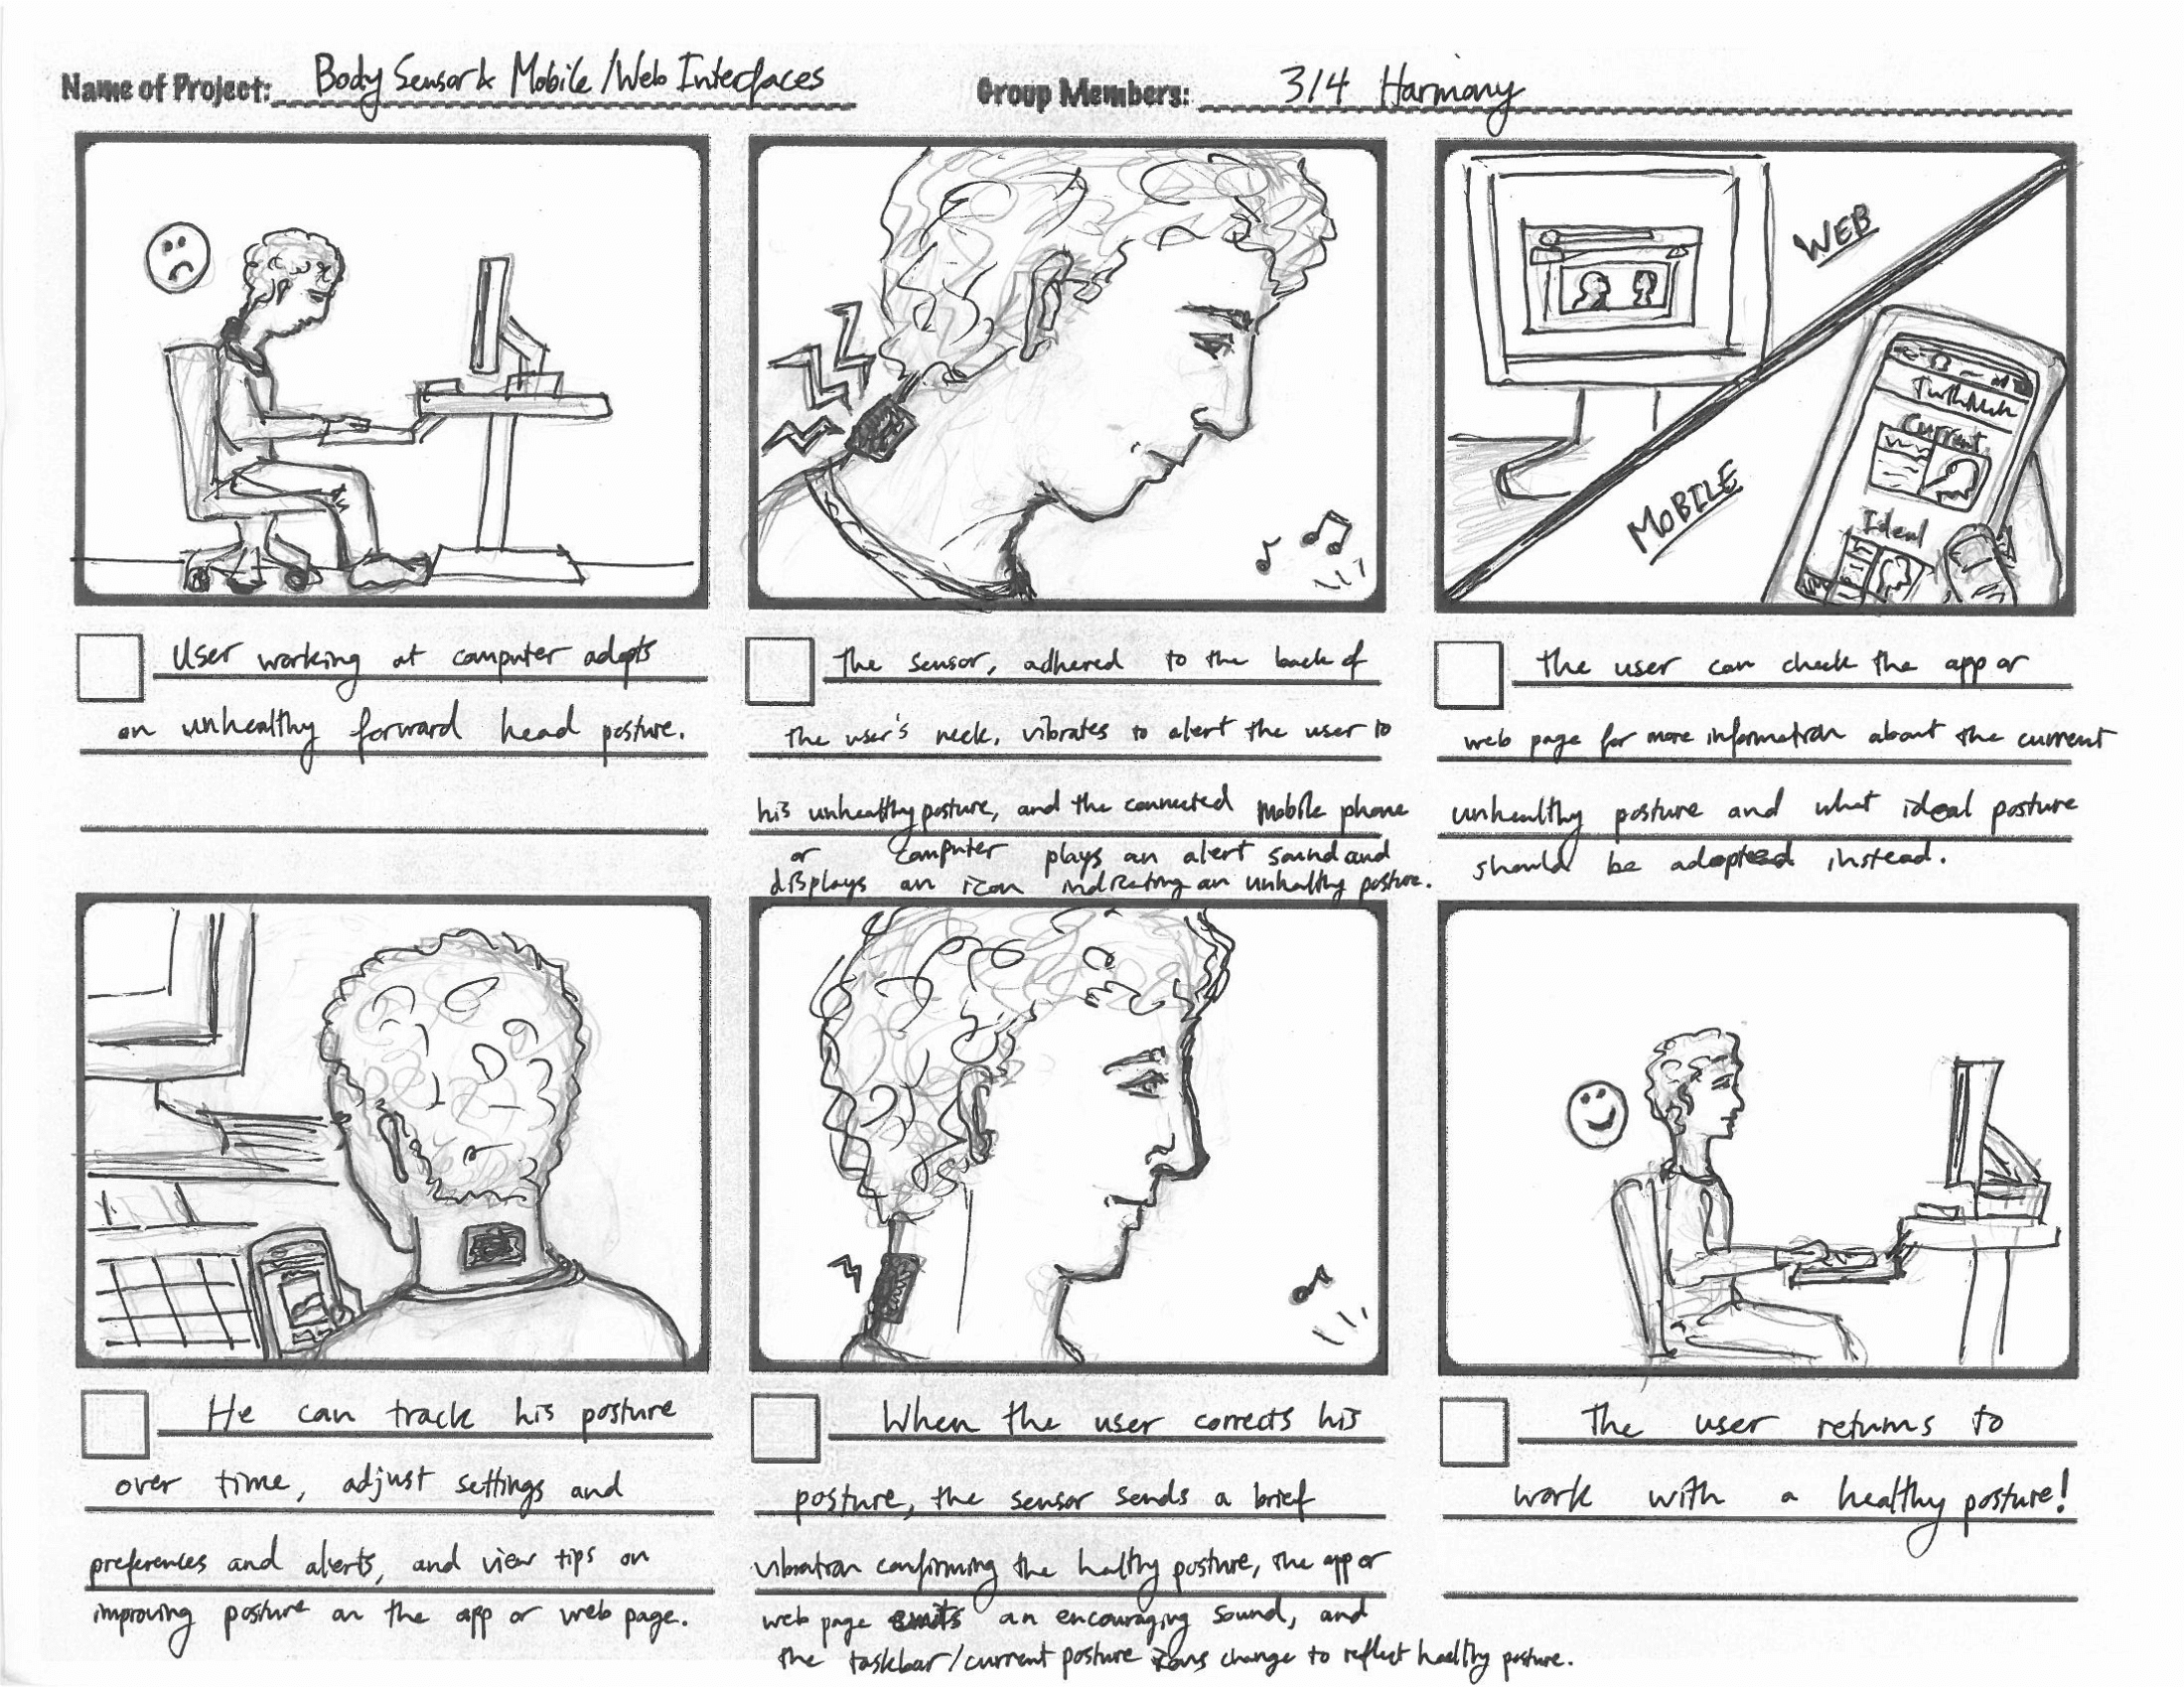 Name of Project: Body Sensor & Mobile/Web Interfaces
Group Members: 3/4 Harmony
WEB
MOBILE
Current
Ideal
User working at computer adopts
an unhealthy forward head posture.
The sensor, adhered to the back of
the user's neck, vibrates to alert the user to
his unhealthy posture, and the connected mobile phone
or computer plays an alert sound and
displays an icon indicating an unhealthy posture.
The user can check the app or
web page for more information about the current
unhealthy posture and what ideal posture
should be adopted instead.
He can track his posture
over time, adjust settings and
preferences and alerts, and view tips on
improving posture on the app or web page.
When the user corrects his
posture, the sensor sends a brief
vibration confirming the healthy posture, the app or
web page emits an encouraging sound, and
the taskbar/current posture icons change to reflect healthy posture.
The user returns to
work with a healthy posture!